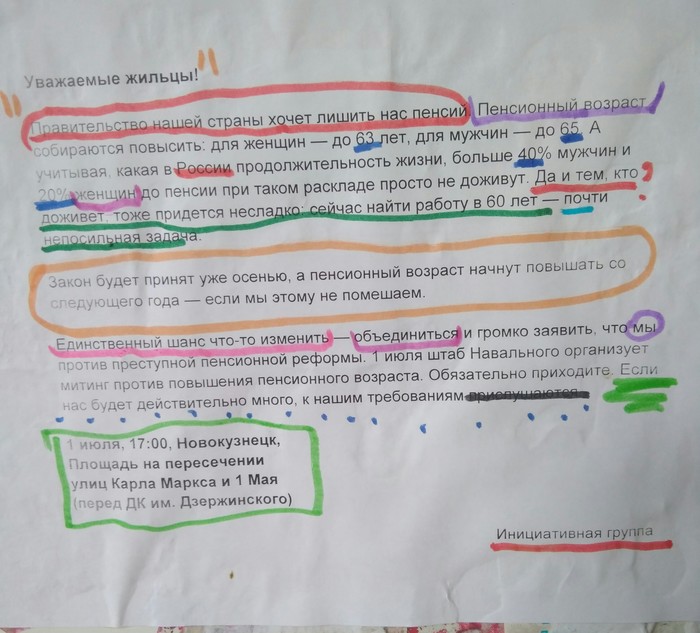 Уважаемые жильцы!
Правительство нашей страны хочет лишить нас пенсий. Пенсионный возраст
собираются повысить: для женщин — до 63 лет, для мужчин — до 65. А
учитывая, какая в России продолжительность жизни, больше 40% мужчин и
20% женщин до пенсии при таком раскладе просто не доживут. Да и тем, кто
доживет, тоже придется несладко: сейчас найти работу в 60 лет — почти
непосильная задача.
Закон будет принят уже осенью, а пенсионный возраст начнут повышать со
следующего года — если мы этому не помешаем.
Единственный шанс что-то изменить — объединиться и громко заявить, что мы
против преступной пенсионной реформы. 1 июля штаб Навального организует
митинг против повышения пенсионного возраста. Обязательно приходите. Если
нас будет действительно много, к нашим требованиям прислушаются.
1 июля, 17:00, Новокузнецк,
Площадь на пересечении
улиц Карла Маркса и 1 Мая
(перед ДК им. Дзержинского)
Инициативная группа